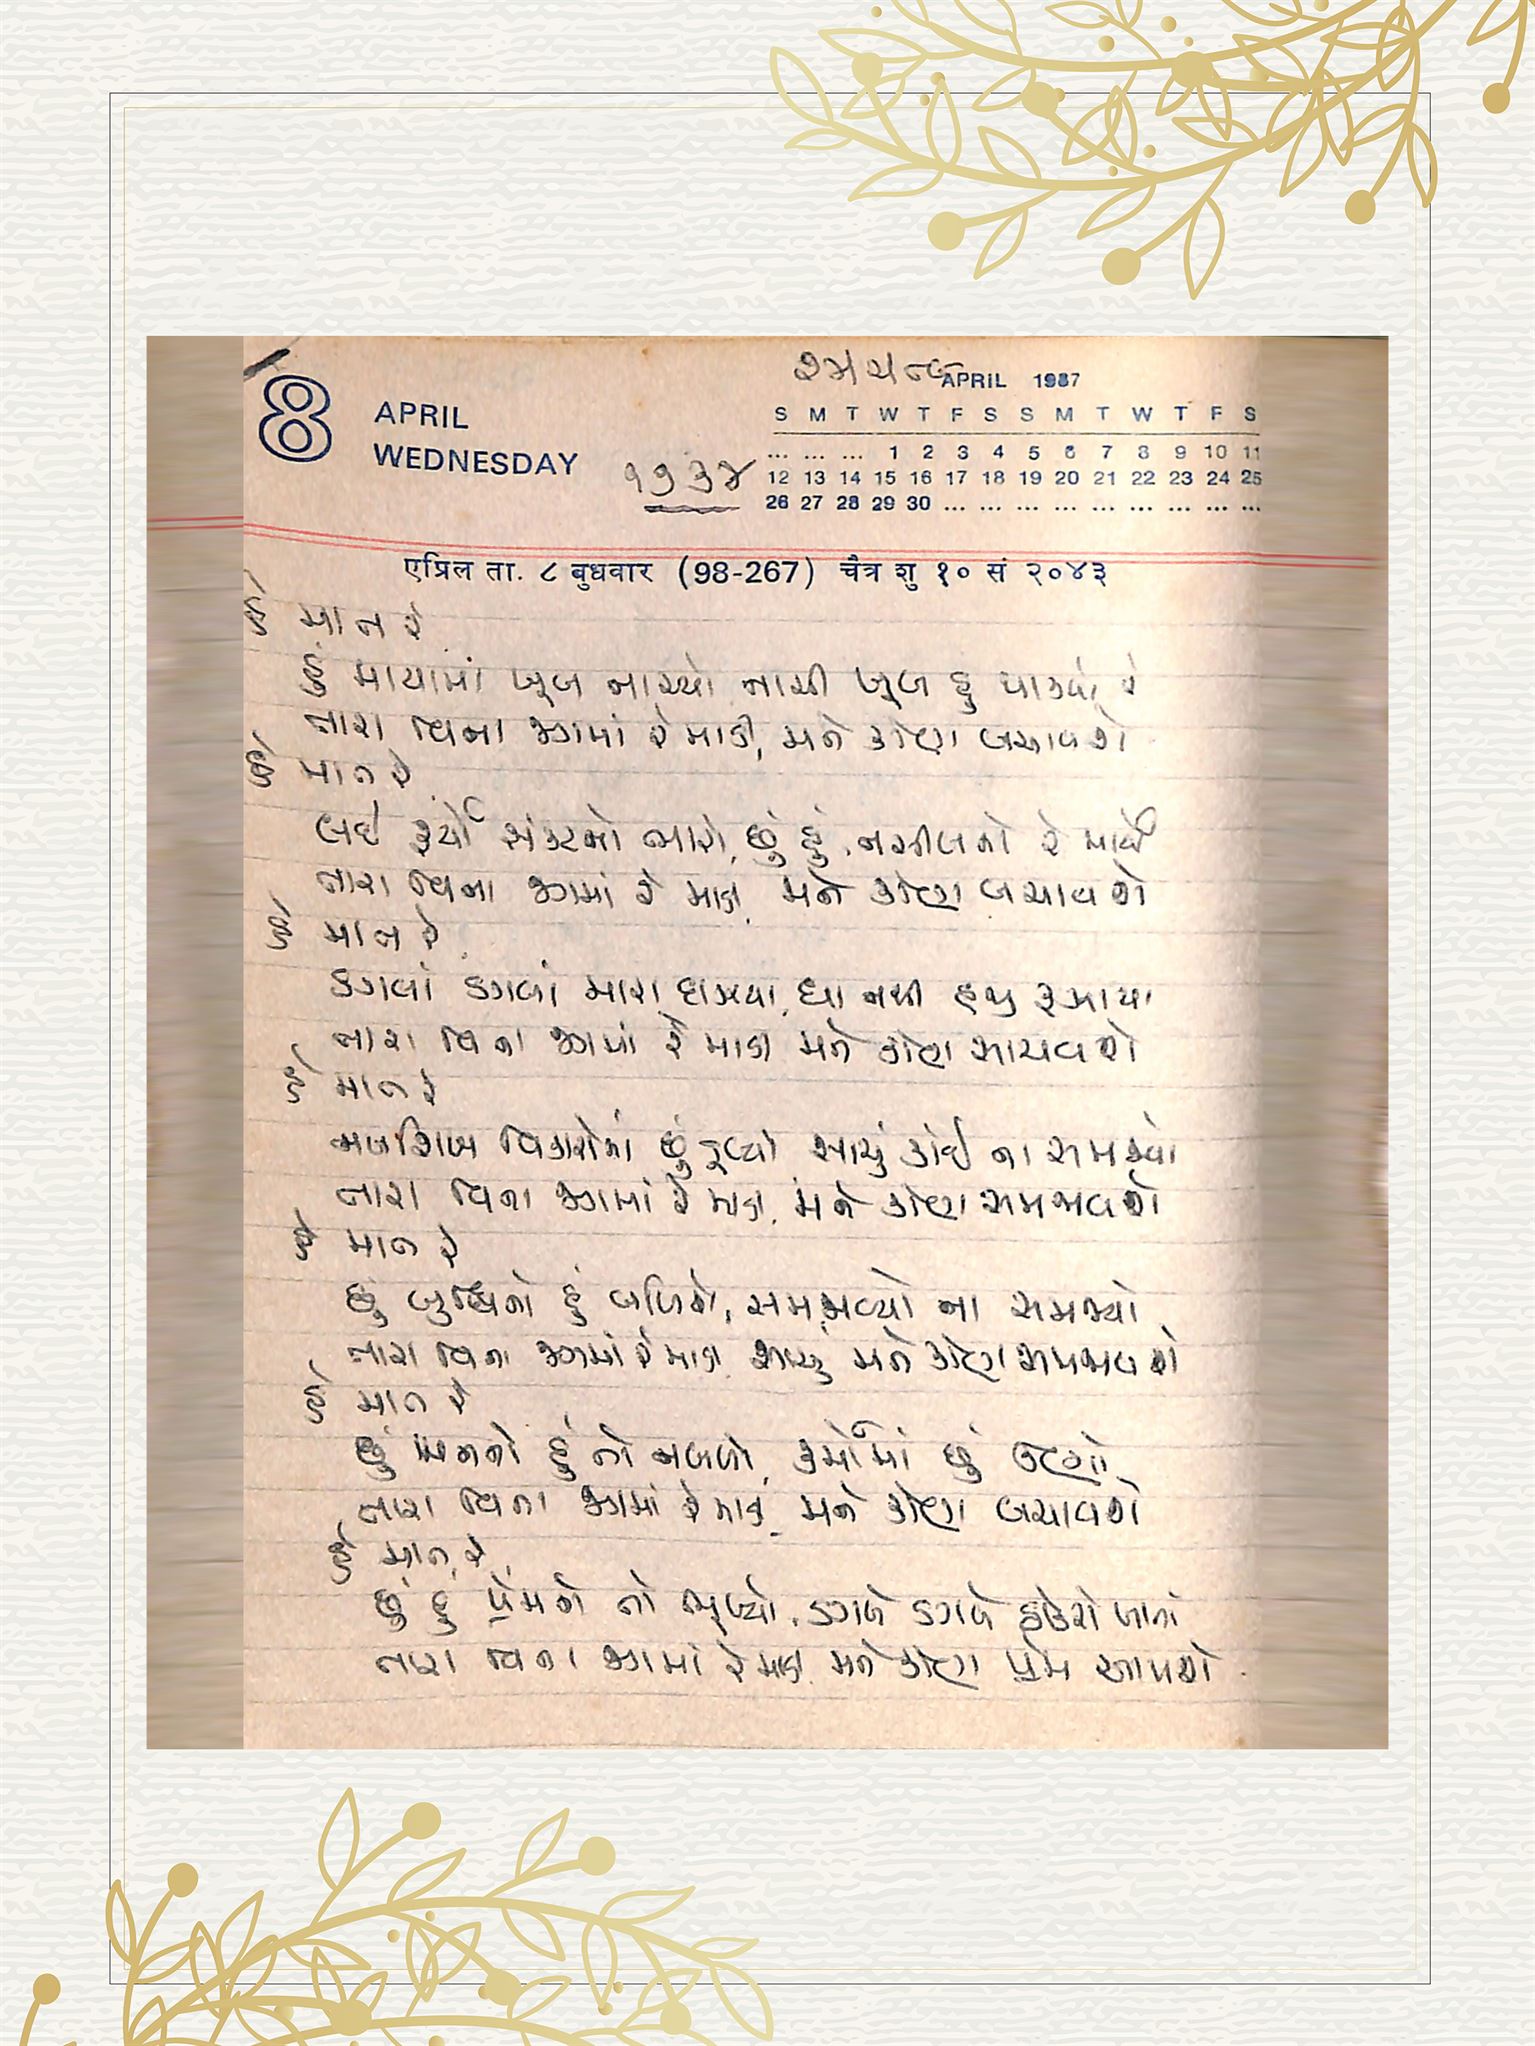 8
APRIL
WEDNESDAY
૧૭૩૪
APRIL 1987
S M T W T F S S M T W T F S
... ... ... 1 2 3 4 5 6 7 8 9 10 11
12 13 14 15 16 17 18 19 20 21 22 23 24 25
26 27 28 29 30 ... ... ... ... ... ... ... ... ...
एप्रिल ता. ८ बुधवार (98-267) चैत्र शु १० सं २०४३
હે માત રે
હું માયામાં ખૂબ નાચ્યો નાચી ખૂબ હું થાક્યો રે
તારા વિના જગમાં રે માડી, મને કોણ બચાવશે
હે માત રે
લઈ ફર્યો અહંકારનો ભારો, છું હું, નસીબનો રે માર્યો
તારા વિના જગમાં રે માડી, મને કોણ બચાવશે
હે માત રે
ડગલાં ડગલાં મારા, ઘા નથી હજુ રૂઝાયા
તારા વિના જગમાં રે માડી મને કોણ સાચવશે
હે માત રે
નખશિખ વિકારોમાં છું ડૂબ્યો સાચું કોઈ ના સમજ્યો
તારા વિના જગમાં રે માડી, મને કોણ સમજાવશે
હે માત રે
છું બુદ્ધિનો હું બળિયો, સમજાવ્યો ના સમજ્યો
તારા વિના જગમાં રે માડી સાચું મને કોણ સમજાવશે
હે માત રે
છું મનનો હું તો નબળો, કર્મોમાં છું
તારા વિના જગમાં રે માડી, મને કોણ બચાવશે
હે માત રે
છું હું પ્રેમનો તો ભૂખ્યો, ડગલે ડગલે
તારા વિના જગમાં રે માડી મને કોણ પ્રેમ આપશે